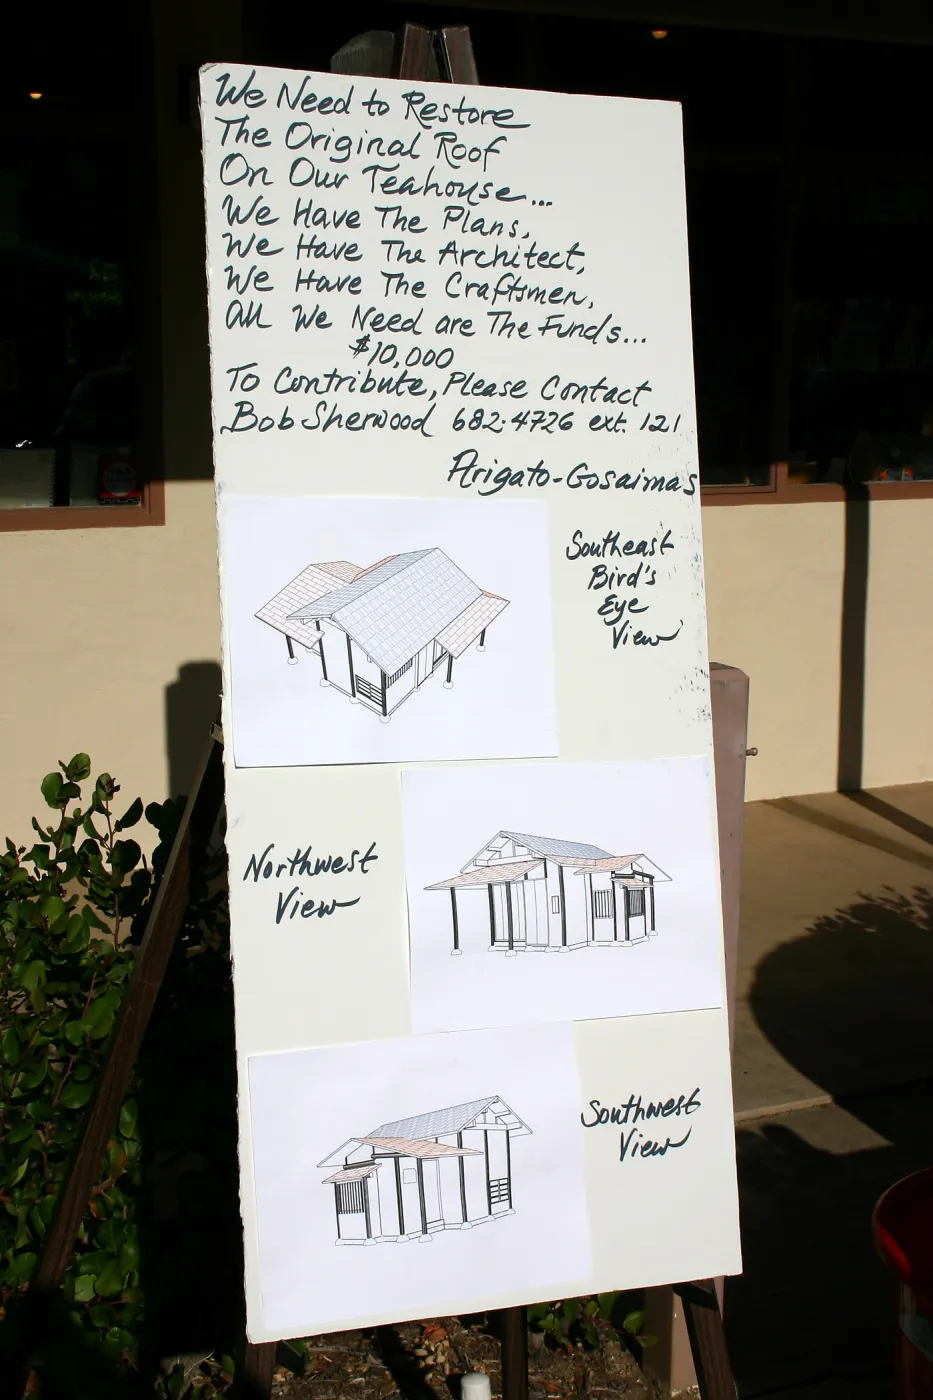 We Need to Restore
The Original Roof
On Our Teahouse...
We Have The Plans,
We Have The Architect,
We Have The Craftsmen,
All We Need are The Funds...
$10,000
To Contribute, Please Contact
Bob Sherwood 682-4726 ext. 121
Arigato-Gosaimas
Southeast
Bird's
Eye
View
Northwest
View
Southwest
View